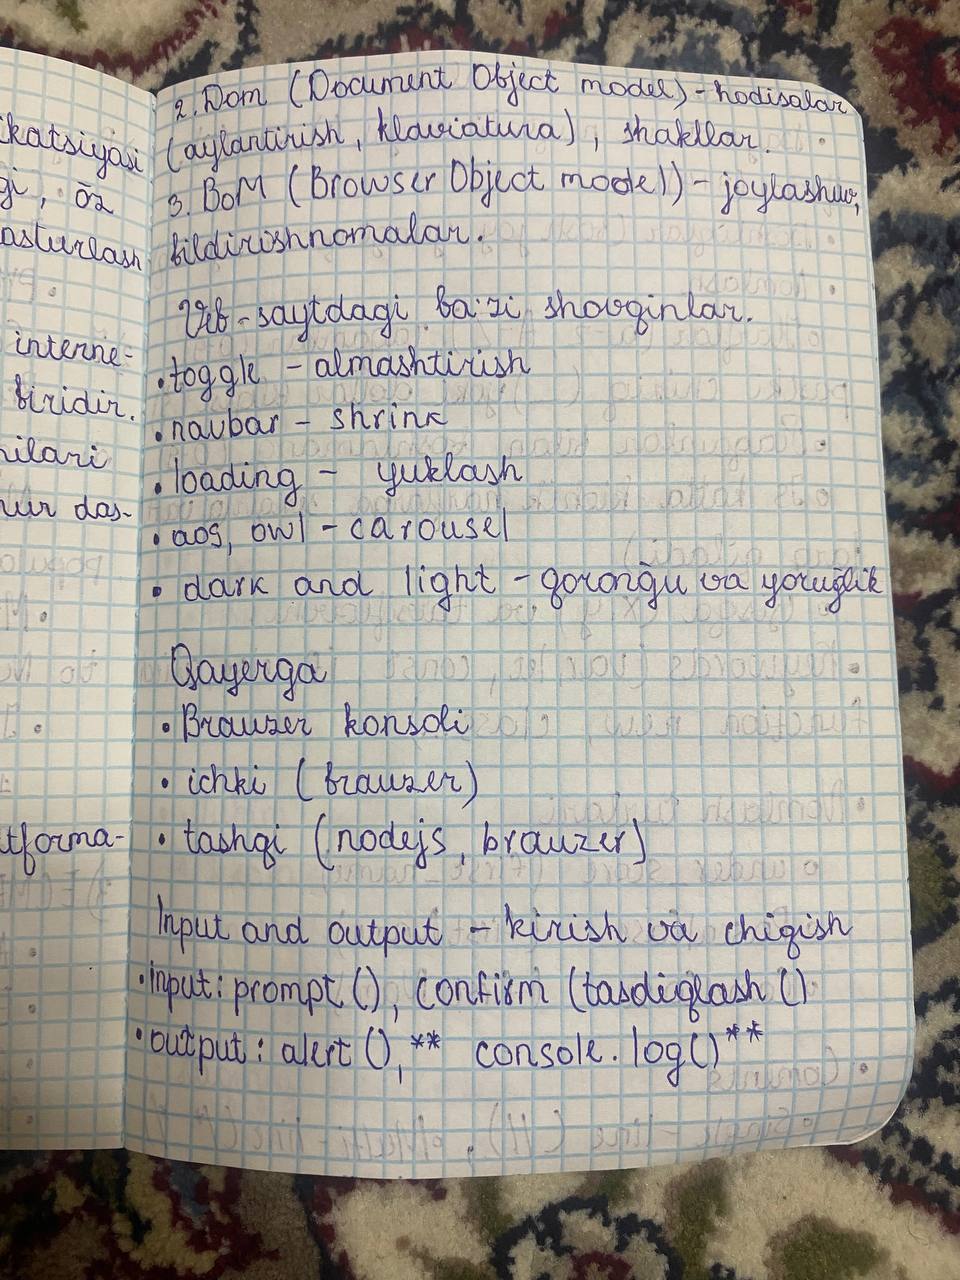 ikatsiyasi
gi, öz
asturlash
interne-
biridir.
hilari
hur das-
tforma-
2. Dom (Document Object model) - hodisalar
(aylantirish, klaviatura), shakllar.
3. BoM (Browser Object model)) - joylashuv,
bildirishnomalar.
Veb-saytdagi ba'zi shovqinlar.
• toggle - almashtirish
• navbar - shrink
• loading - yuklash
• aos, owl - carousel
• dark and light - qorong̃u va yorug̃lik
Qayerga
• Brauzer konsoli
• ichki (brauzer)
• tashqi (nodejs, brauzer)
Input and output - kirish va chiqish
• input: prompt (), confirm (tasdiqlash ()
• output: alert (), ** console.log()**